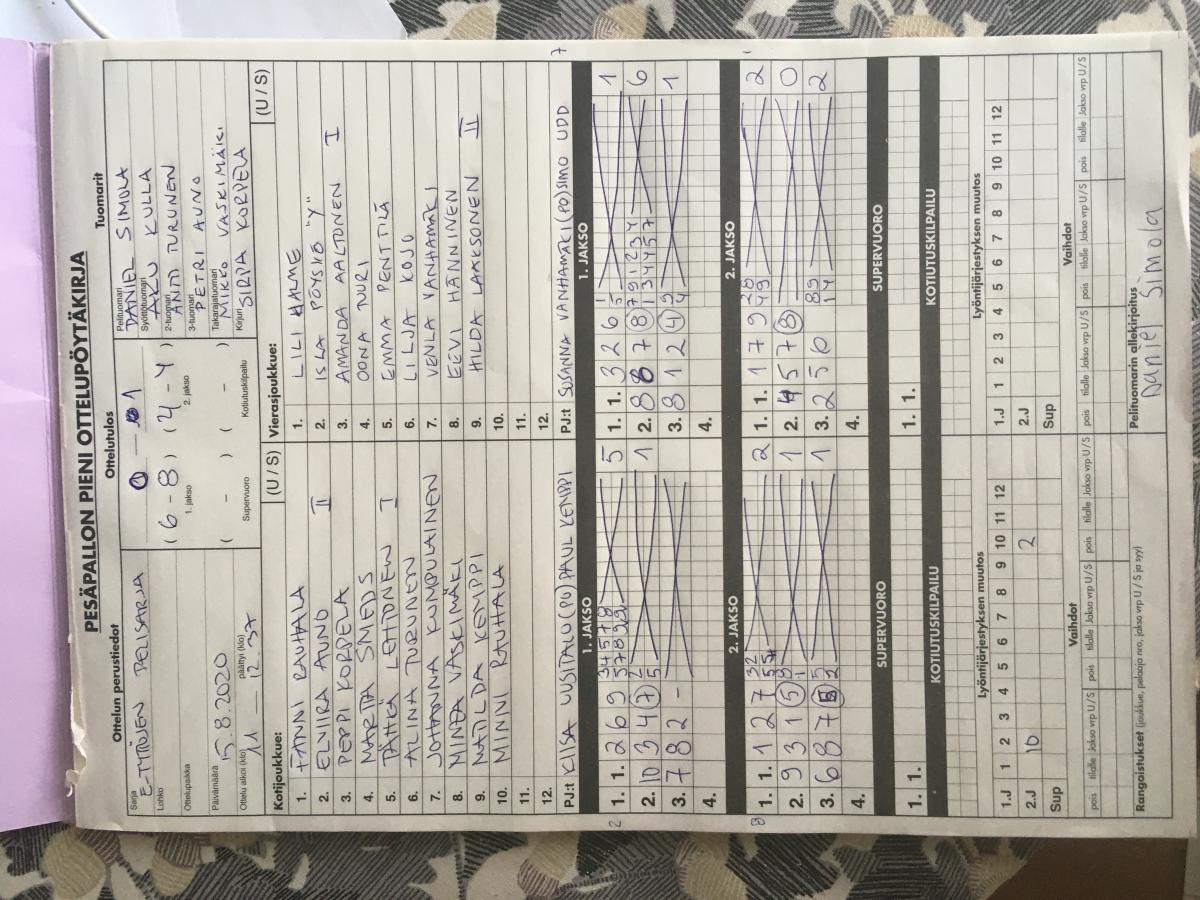 PESÄPALLON PIENI OTTELUPÖYTÄKIRJA
Ottelun perustiedot
Ottelutulos
Tuomarit
Sarja
E-TYTTÖJEN PELISARJA
Lohko
Ottelupaikka
Päivämäärä
15.8.2020
Ottelu alkoi (klo) päättyi (klo)
11 12.37
0 — 1
(6 - 8) (2 - 4)
1. jakso 2. jakso
( - ) ( - )
Supervuoro Kotiutuskilpailu
Pelituomari
DANIEL SIMOLA
Syöttötuomari
AKU KULLA
2-tuomari
ANTI TURUNEN
3-tuomari
PETRI AUNO
Takarajatuomari
MIKKO VASKIMÄKI
Kirjuri SIRPA KORPELA
Kotijoukkue: (U / S)
1. FANNI RAUHALA
2. ELVIIRA AUNO II
3. PEPPI KORPELA
4. MARTTA SMEDS
5. PÄTKÄ LEHTONEN I
6. ALINA TURUNEN
7. JOHANNA KUMPULAINEN
8. MINEA VASKIMÄKI
9. MATILDA KEMPPI
10. MINNI RAUHALA
11.
12.
PJ:t KIISA UUSITALO (PU) PAUL KEMPPI
Vierasjoukkue: (U / S)
1. LILI HALME
2. ISLA PÖYSKÖ "Y"
3. AMANDA AALTONEN I
4. OONA TUURI
5. EMMA PENTTILÄ
6. LILJA KOJO
7. VENLA VANHAMÄKI
8. EEVI HÄNNINEN
9. HILDA LAAKSONEN II
10.
11.
12.
PJ:t SUSANNA VANHAMÄKI (PO) SIMO UDD
1. JAKSO
1. 1. 2 6 9 5
2. 10 3 4 7 1
3. 7 8 2 -
4.
1. JAKSO
1. 1. 3 2 6 1
2. 8 8 7 8 6
3. 8 1 2 4 1
4.
2. JAKSO
1. 1. 1 2 7 2
2. 9 3 1 5 1
3. 6 8 7 1
4.
2. JAKSO
1. 1. 1 7 9 2
2. 4 5 7 8 0
3. 2 5 6 2
4.
SUPERVUORO
1. 1.
SUPERVUORO
1. 1.
KOTIUTUSKILPAILU
KOTIUTUSKILPAILU
Lyöntijärjestyksen muutos
1.J 1 2 3 4 5 6 7 8 9 10 11 12
2.J 10 2
Sup
Lyöntijärjestyksen muutos
1.J 1 2 3 4 5 6 7 8 9 10 11 12
2.J
Sup
Vaihdot
pois tilalle Jakso vrp U/S pois tilalle Jakso vrp U/S pois tilalle Jakso vrp U/S
Vaihdot
pois tilalle Jakso vrp U/S pois tilalle Jakso vrp U/S pois tilalle Jakso vrp U/S
Rangaistukset (joukkue, pelaaja nro, jakso vrp U / S ja syy)
Pelituomarin allekirjoitus
Daniel Simola